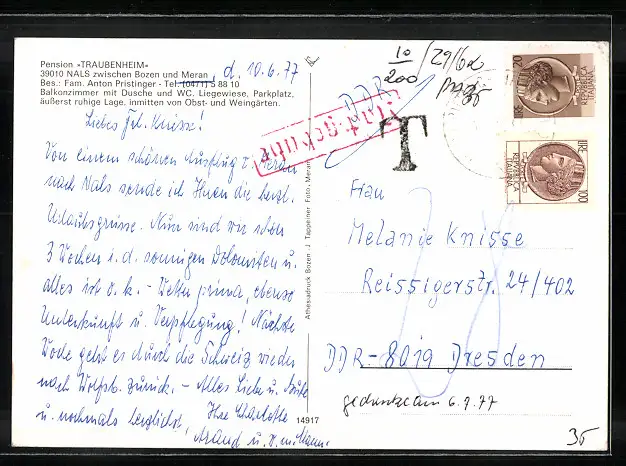 Pension »TRAUBENHEIM«
39010 NALS zwischen Bozen und Meran, d. 10.6.77
Bes.: Fam. Anton Pristinger - Tel. (0471) 5 88 10
Balkonzimmer mit Dusche und WC, Liegewiese, Parkplatz,
äußerst ruhige Lage, inmitten von Obst- und Weingärten.
Liebes Frl. Knisse!
Von einem schönen Ausflug v. Meran
nach Nals sende ich Ihnen die herzl.
Urlaubsgrüsse. Nun sind wir schon
3 Wochen i. d. sonnigen Dolomiten u.
alles ist o.k. - Wetter prima, ebenso
Unterkunft u. Verpflegung! Nächste
Woche geht es durch die Schweiz wieder
nach Wolfsb. zurück. - Alles Liebe u. Gute
u. nochmals herzlichst,
Ihre Charlotte
14917
Athesiadruck Bozen - J. Tappeiner Foto, Meran
10/200
DDR
Nachgebühr
T
20
REPVBBLICA ITALIANA
100
REPVBBLICA ITALIANA
Frau
Melanie Knisse
Reissigerstr. 24/402
DDR-8019 Dresden
gedankt am 6.7.77
35